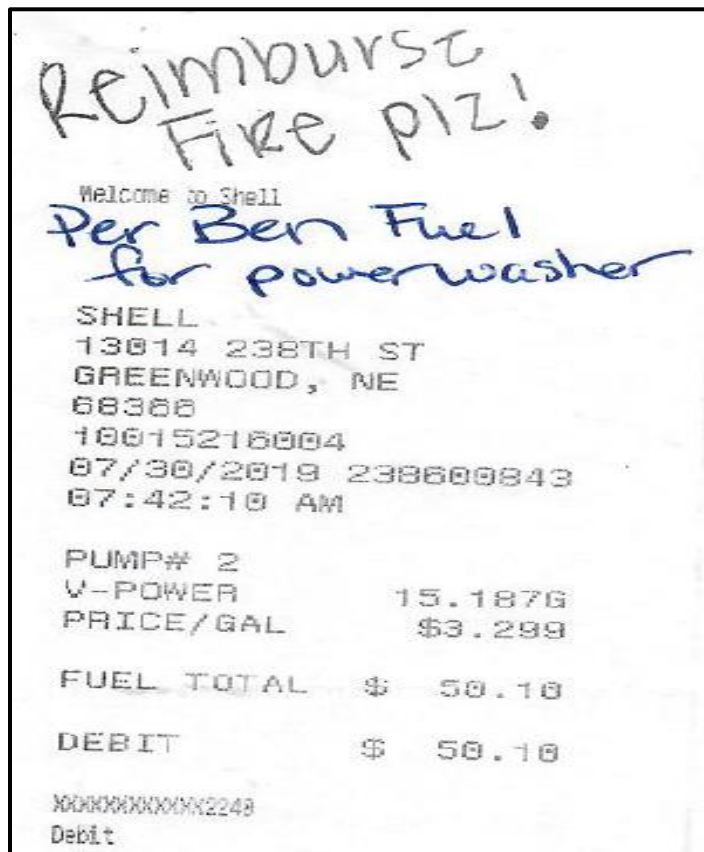 Reimburse
Fire plz!
Welcome to Shell
Per Ben Fuel
for powerwasher
SHELL
13014 238TH ST
GREENWOOD, NE
68366
10015216004
07/30/2019 238600843
07:42:10 AM
PUMP# 2
V-POWER 15.187G
PRICE/GAL $3.299
FUEL TOTAL $ 50.10
DEBIT $ 50.10
XXXXXXXXXXXX2240
Debit